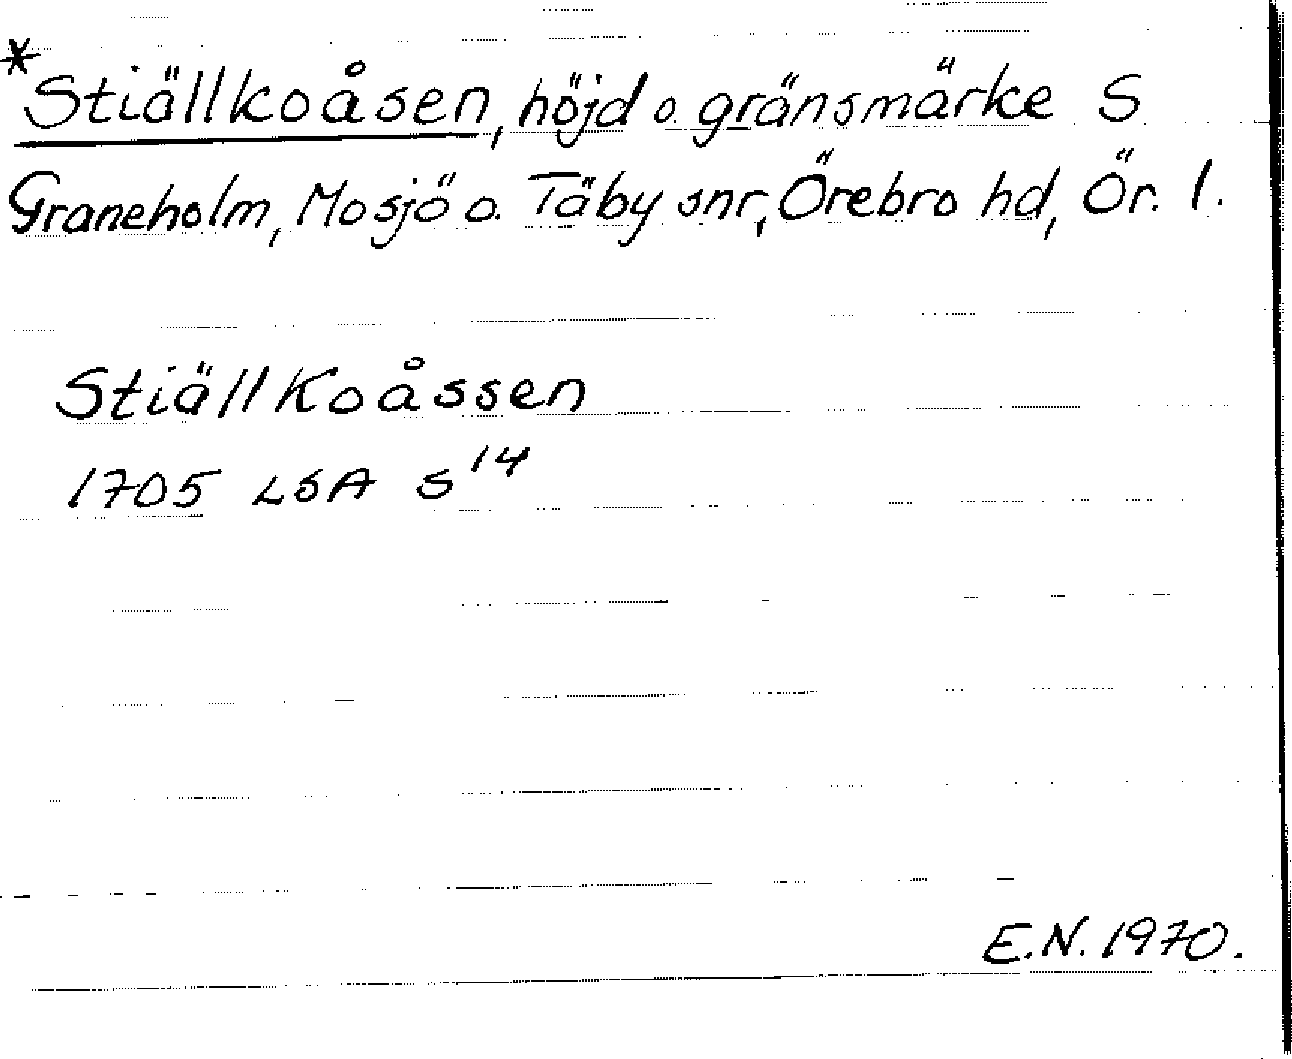 *Stiällkoåsen, höjd o. gränsmärke S
Graneholm, Mosjö o. Täby snr, Örebro hd, Ör. l.
Stiällkoåssen
1705 LSA S 14
E.N. 1970.